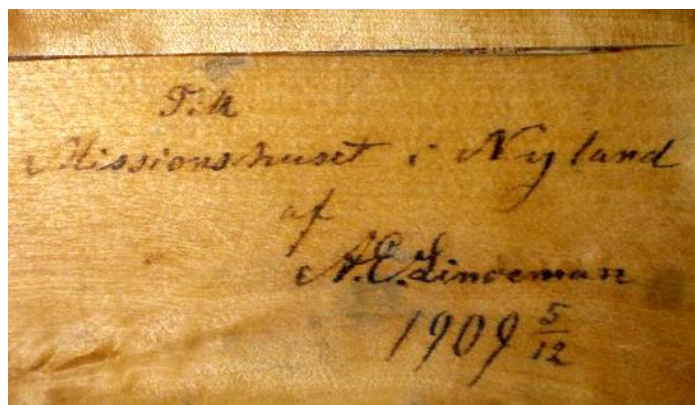 Till
Missionshuset i Nyland
af
A.C. Lindeman
1909 5/12